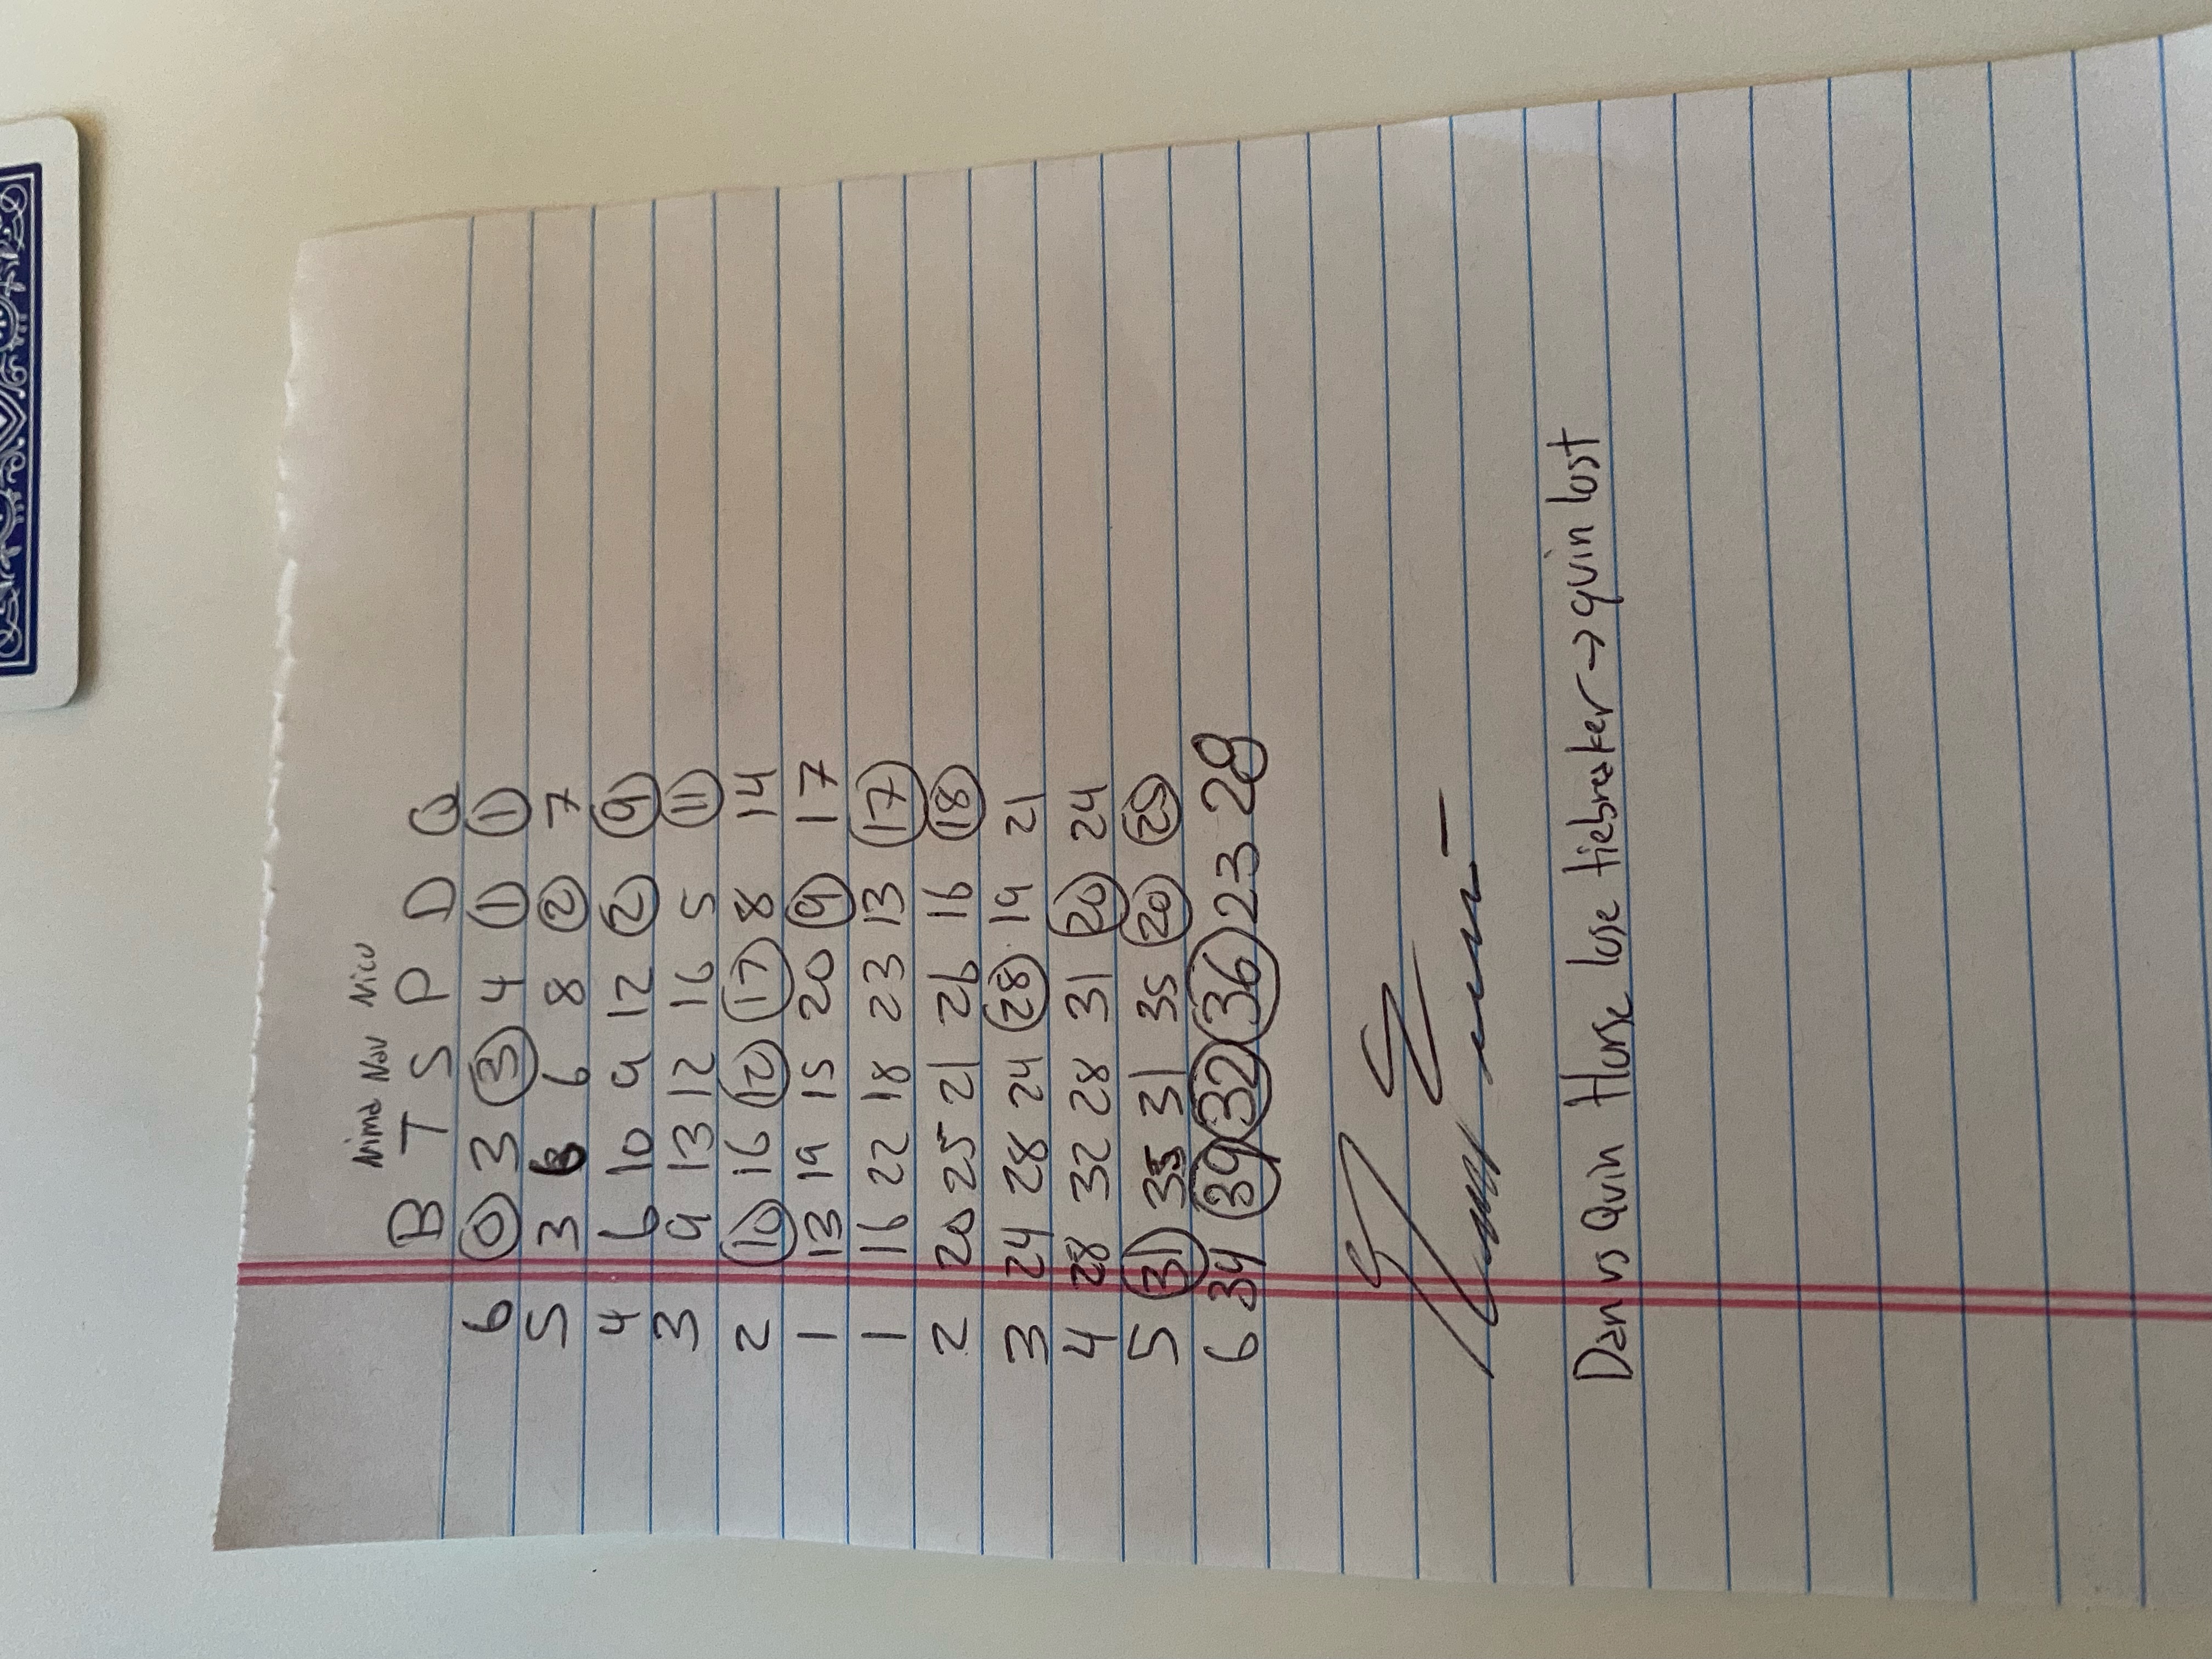 Nima Nav Nico
B T S P D Q
6 0 3 3 4 1 1
5 3 6 6 8 2 7
4 6 10 9 12 2 9
3 9 13 12 16 5 11
2 10 16 12 17 8 14
1 13 19 15 20 9 17
1 16 22 18 23 13 17
2 20 25 21 26 16 18
3 24 28 24 28 19 21
4 28 32 28 31 20 24
5 31 35 31 35 20 25
6 34 39 32 36 23 28
Dan vs Quin Horse lose tiebreaker → quin lost